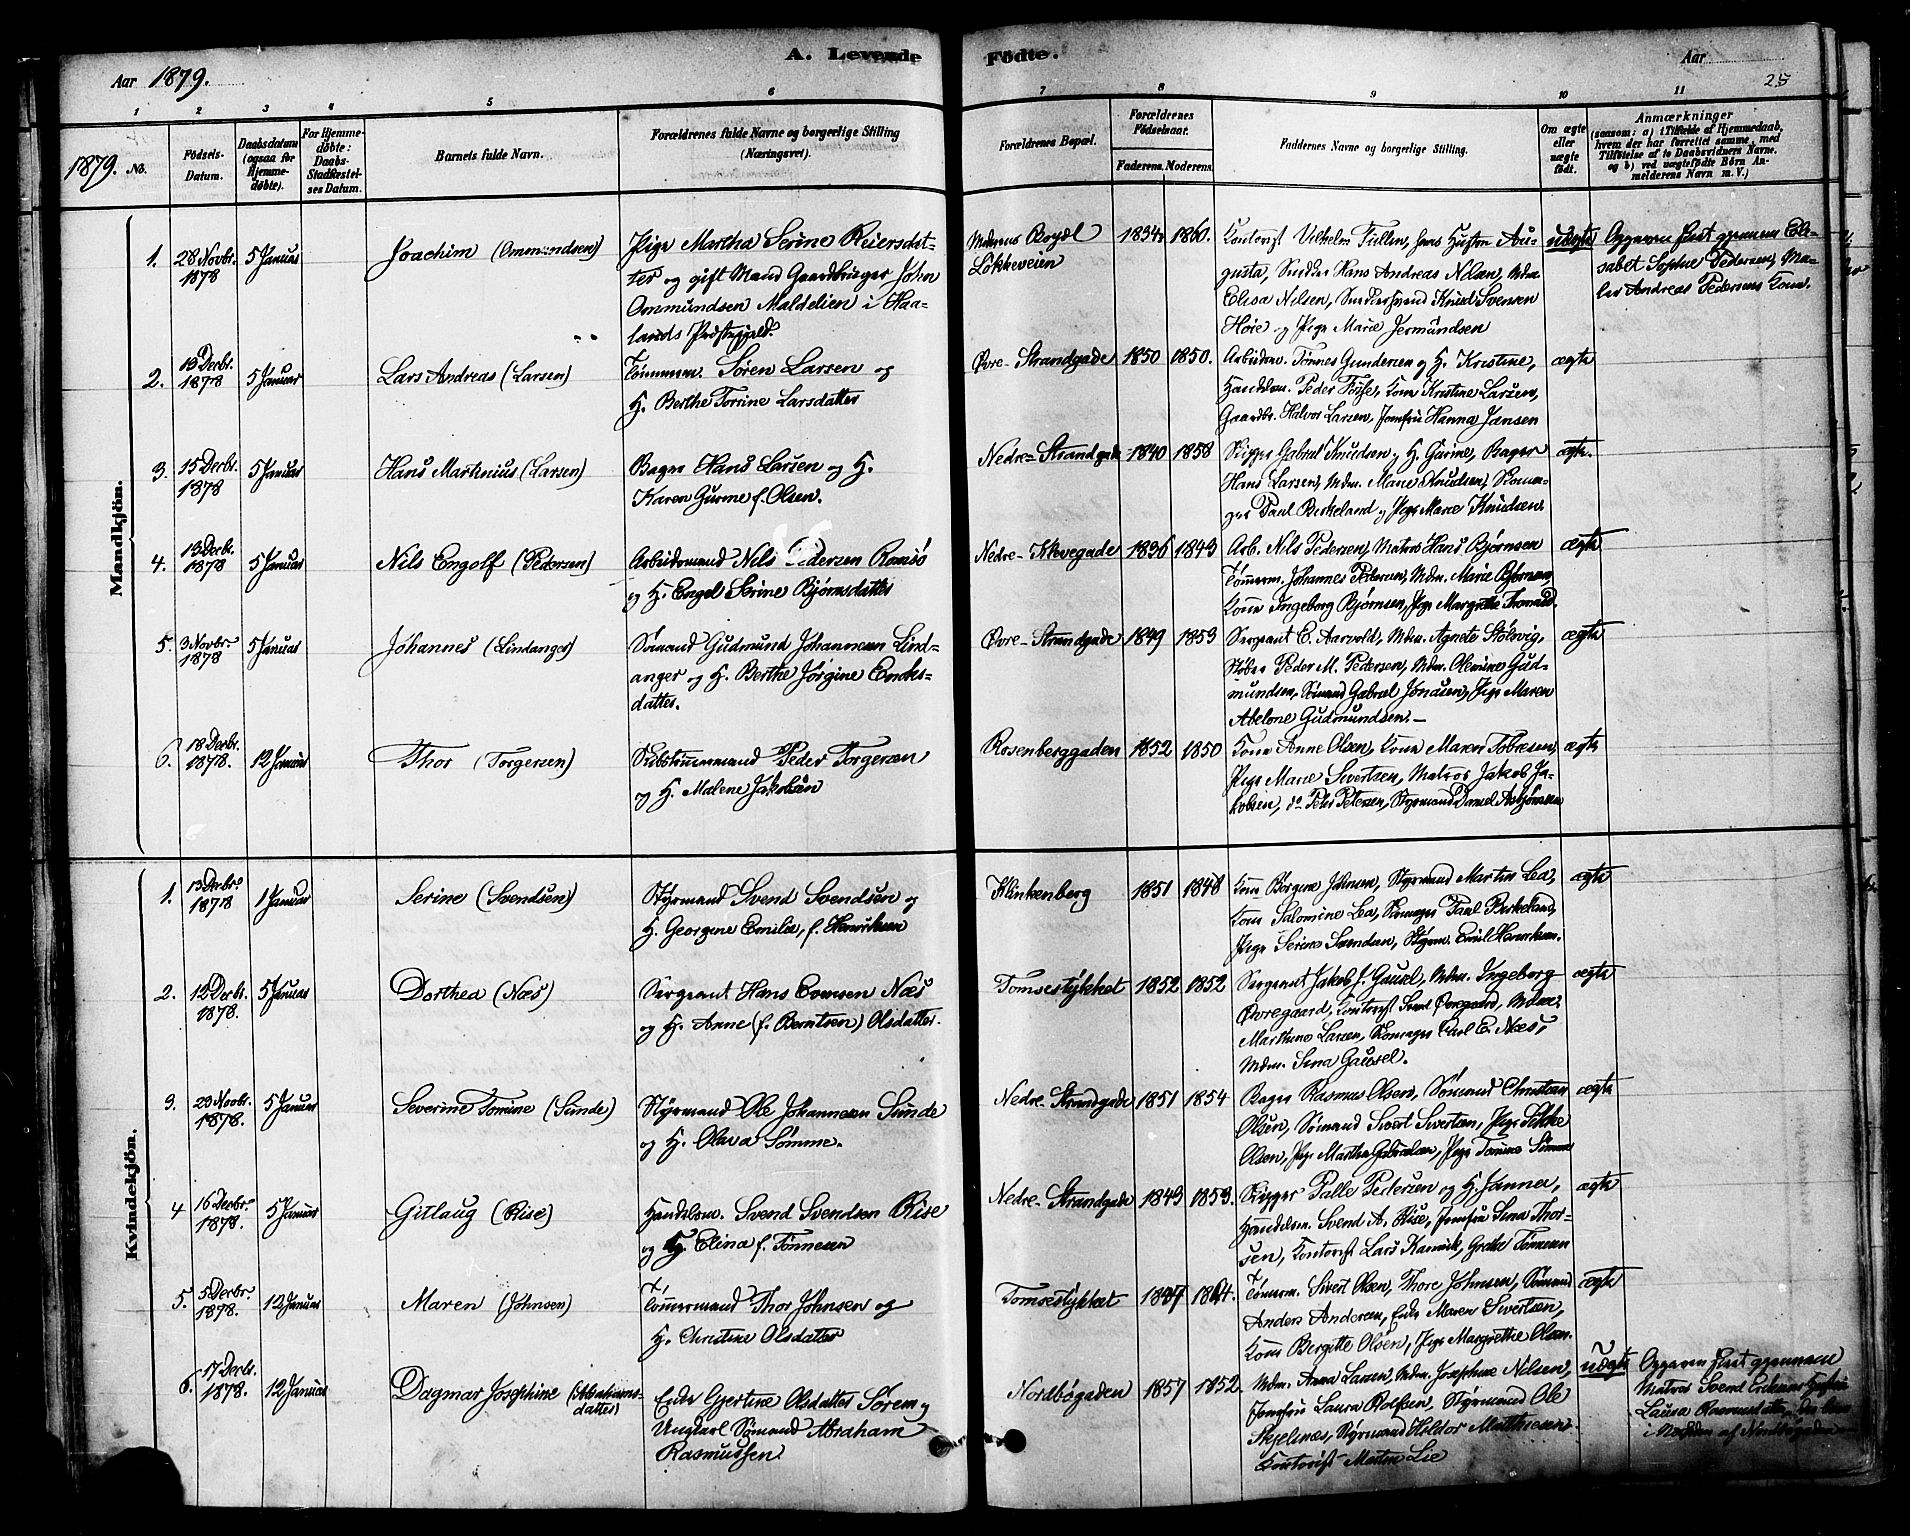 A. Levende Fødte.
Aar 1879.
Aar
25
1 2 3 4 5 6 7 8 9 10 11
1879. No.
Fødsels-Datum.
Daabsdatum (ogsaa før Hjemmedøbte).
For Hjemmedøbte: Daabs-Stadfæstelses Datum.
Barnets fulde Navn.
Forældrenes fulde Navne og borgerlige Stilling (Næringsvei).
Forældrenes Bopæl.
Forældrenes Fødselsaar.
Faderens. Moderens.
Faddernes Navne og borgerlige Stilling.
Om ægte eller uægte født.
Anmærkninger
(saasom: a) i Tilfælde af Hjemmedaab, hvem der har forrettet samme, med Tilføielse af to Daabsvidners Navne. og b) ved uægtefødte Børn Anmelderens Navn m. V.)
Mandkjøn.
1. 28 Novbr. 1878 5 Januar Joachim (Ommundsen)
Pige Martha Serine Reiersdatter og gift Mand Gaardbruger John
Ommundsen Maldelien i Haalands Præstegjeld.
Moderens Bopæl Løkkeveien 1834 1860.
Kontorist Vilhelm Tullen, hans Hustru Augusta, Smed Hans Andreas Nilsen, Mdm.
Elisa Nilsen, Smedesvend Knud Svensen
Høie og Pige Marie Jermundsen
uægte
Opgaven skeet gjennem Elisabet Sophie Pedersen, Maler Andreas Pedersens Kone.
2. 13 Decbr. 1878 5 Januar Lars Andreas (Larsen)
Tømmerm. Søren Larsen og
H. Berthe Torine Larsdatter
Øvre Strandgade 1850 1850.
Arbeidsm. Tønnes Gundersen og H. Kristine,
Handelsm. Peder Fosse, Kone Kristine Larsen,
Gaardbr. Halvor Larsen, Jomfru Hanna Jansen
ægte
3. 15 Decbr. 1878 5 Januar Hans Martinius (Larsen)
Bager Hans Larsen og H.
Karen Gurine f. Olsen.
Nedre Strandgade 1840 1858
Skipper Gabriel Knudsen og H. Gurine, Bager
Hans Larsen, Mdm. Marie Knudsen, Skomager Paul Birkeland og Pige Marie Knudsen.
ægte.
4. 13 Decbr. 1878 5 Januar Nils Engolf (Pedersen)
Arbeidsmand Nils Pedersen Ramsø
og H. Engel Serine Bjørnsdatter
Nedre 1836 1843
Arb. Nils Pedersen, Matros Hans Bjørnsen
Tømmerm. Johannes Pedersen, Mdm. Marie Bjørnsen,
Kone Ingeborg Bjørnsen, Pige Margrethe
ægte
5. 3 Novbr. 1878 5 Januar Johannes (Lindanger)
Sømand Gudmund Johannesen Lindanger og H. Berthe Jørgine Endresdatter.
Øvre Strandgade 1849 1853
Sergeant E. Aarvold, Mdm. Agnete Stølsvig,
Støber Peder M. Pedersen, Mdm. Olemine Gudmundsen, Sømand Gabriel Jonasen, Pige Maren
Abelone Gudmundsen.
ægte
6. 18 Decbr. 1878. 12 Januar Thor (Torgersen)
Skibstømmermand Peder Torgersen
og H. Malene Jakobsen
Rosenberggaden 1852 1850
Kone Anne Olsen, Kone Maren Tobiesen,
Pige Marie Sivertsen, Matros Jakob Jakobsen, do Peder Petersen, Styrmand Daniel Asbjørnsen
ægte
Kvindekjøn.
1. 13 Decbr. 1878 1 Januar Serine (Svendsen)
Styrmand Svend Svendsen og
H. Georgine Emilie, f. Henriksen
Klinkenberg 1851 1848
Kone Børgine Johnsen, Styrmand Martin Lea,
Kone Salomine Lea, Skomager Paul Birkeland,
Pige Serine Svendsen, Styrm. Emil Henriksen.
ægte
2. 12 Decbr. 1878. 5 Januar Dorthea (Næs)
Sergeant Hans Evensen Næs
og H. Anne (f. Berntsen) Olsdatter.
Tomsestykket 1852 1852
Sergeant Jakob J. Gausel, Mdm. Ingeborg
Øvregaard, Kontorist Svend Øvregaard, Mdm.
Marthine Larsen, Skomager Carl E. Næs,
Mdm. Sina Gausel.
ægte
3. 29 Novbr. 1878. 5 Januar Severine Tomine (Sunde)
Styrmand Ole Johannesen Sunde
og H. Olava Sømme.
Nedre Strandgade 1851 1854
Bager Rasmus Olsen, Sømand Christian
Olsen, Sømand Sivert Sivertsen, Pige
Olsen, Pige Martha Gabrielsen, Pige Tomine Sømme
ægte
4 16 Decbr. 1878. 5 Januar Gitlaug (Rise)
Handelsm. Svend Svendsen Rise
og H. Elina f. Tønnesen
Nedre Strandgade 1843 1853.
Skipper Palle Pedersen og H. Janna,
Handelsm. Svend A. Rise, Jomfru Sina Thorsen, Kontorist Lars Kannik, Grethe Tønnesen
ægte
5. 5 Decbr. 1878. 12 Januar Maren (Johnsen)
Tømmermand Thor Johnsen og
H. Christine Olsdatter
Tomsestykket 1847
Tømmerm. Sivert Olsen, Thore Johnsen, Sømand
Anders Andersen, Enke Maren Sivertsen,
Kone Bergitte Olsen, Pige Margrethe Olsen.
ægte
6. 17 Decbr. 1878. 12 Januar Dagmar Josephine (Abrahamsdatter)
Enke Gjertine Olsdatter Sørem og
Ungkarl Sømand Abraham
Rasmussen.
Nordbøgaden 1857 1852.
Mdm. Anna Larsen, Mdm. Josephine Nilsen,
Jomfru Laura Rolfsen, Styrmand Ole
Skjelnæs, Styrmand Haldor Mathiesen.
Kontorist Morten Lie
uægte
Opgaven skeet gjennem
Matros Svend Hustru
Laura
af Nordbøgaden